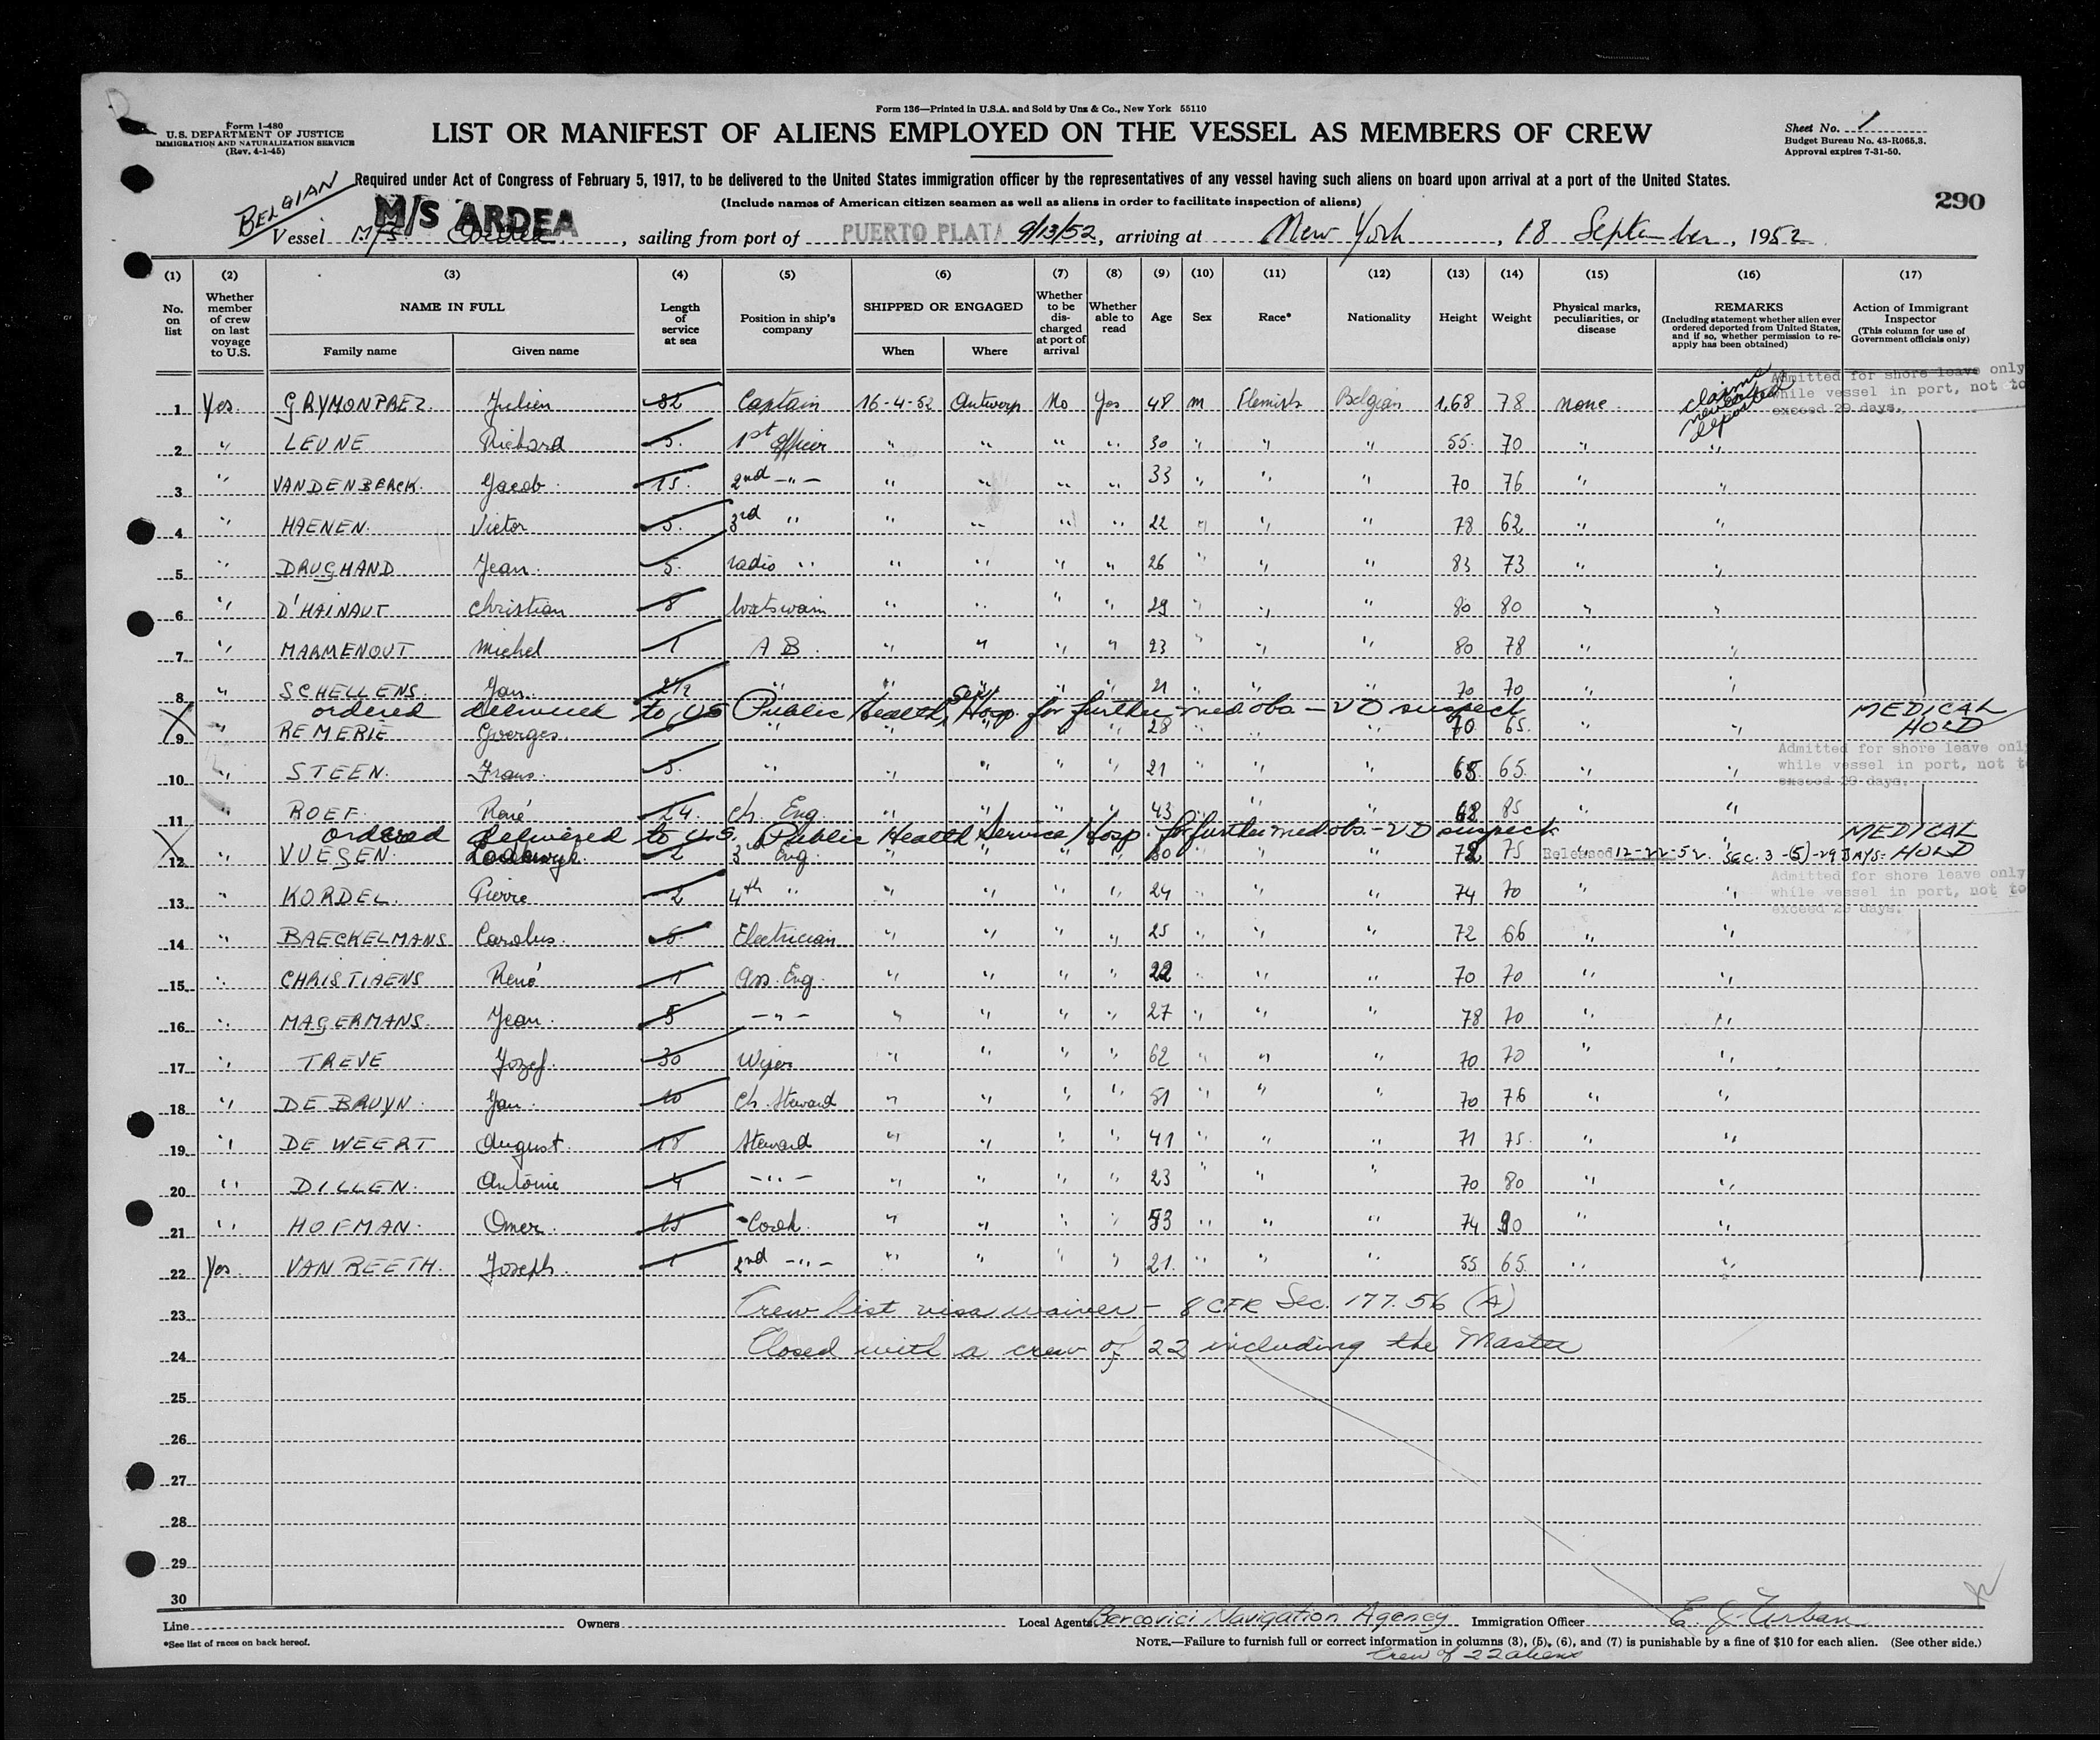 Form 136—Printed in U.S.A. and Sold by Unz & Co., New York 55110
Form I-480
U.S. DEPARTMENT OF JUSTICE
IMMIGRATION AND NATURALIZATION SERVICE
(Rev. 4-1-45)
LIST OR MANIFEST OF ALIENS EMPLOYED ON THE VESSEL AS MEMBERS OF CREW
Sheet No. 1
Budget Bureau No. 43-R065.3.
Approval expires 7-31-50.
Required under Act of Congress of February 5, 1917, to be delivered to the United States immigration officer by the representatives of any vessel having such aliens on board upon arrival at a port of the United States.
(Include names of American citizen seamen as well as aliens in order to facilitate inspection of aliens)
290
BELGIAN
M/S ARDEA
Vessel M/S. , sailing from port of PUERTO PLATA 9/13/52, arriving at New York, 18 September, 1952
(1) (2) (3) (4) (5) (6) (7) (8) (9) (10) (11) (12) (13) (14) (15) (16) (17)
No. on list
Whether member of crew on last voyage to U.S.
NAME IN FULL
Family name Given name
Length of service at sea
Position in ship's company
SHIPPED OR ENGAGED
When Where
Whether to be discharged at port of arrival
Whether able to read
Age
Sex
Race*
Nationality
Height
Weight
Physical marks, peculiarities, or disease
REMARKS
(Including statement whether alien ever ordered deported from United States, and if so, whether permission to reapply has been obtained)
Action of Immigrant Inspector
(This column for use of Government officials only)
Admitted for shore leave only while vessel in port, not to exceed 29 days.
1 Yes. GRYMONPREZ. Julien 32 Captain 16-4-52 Antwerp No Yes 48 m Flemish Belgian 1,68 78 none. claims never deported
2 " LEUNE Richard 5. 1st officer " " " " 30 " " " 55. 70 " "
3 " VANDENBERCK. Jacob. 15. 2nd -"- " " " " 33 " " " 70 76 " "
4 " HAENEN. Victor 5. 3rd " " " " " 22 " " " 78 62 " "
5 " DRUGHAND Jean. 5. radio " " " " " 26 " " " 83 73 " "
6 " D'HAINAUT Christian 8 " " " " 29 " " " 80 80 " "
7 " MARMENOUT Michel 1 AB. " " " " 23 " " " 80 78 " "
8 " SCHELLENS. Jan. 2 1/2 " " " " " 21 " " " 70 70 " "
ordered delivered to US Public Health Serv. Hosp. for further med. obs. — VD suspect MEDICAL HOLD
9 " REMERIE Goerges. " " " " " 28 " " " 70. 65. " "
Admitted for shore leave only while vessel in port, not to exceed 29 days.
10 " STEEN. Frans. 5. " " " " " 21 " " " 68 65. " "
11 " ROEF. René 24. ch. Eng " " " " 43 " " " 68 85 " "
ordered delivered to U.S. Public Health Service Hosp. for further med obs. - VD suspect MEDICAL HOLD
12 " VUEGEN. Lodewyk. 2 3rd Eng. " " " " 30 " " " 72 75 Released 12-22-52. SEC. 3-(5)-29 DAYS-
Admitted for shore leave only while vessel in port, not to exceed 29 days.
13 " KORDEL. Pierre 2 4th " " " " " 24 " " " 74 70 " "
14 " BAECKELMANS Carolus. 6. Electrician " " " " 25 " " " 72 66 " "
15 " CHRISTIAENS René 1 ass. Eng. " " " " 22 " " " 70 70 " "
16 " MAGERMANS. Jean. 5 -"- " " " " 27 " " " 78 70 " "
17 " TREVE Jozef. 30 Wiper " " " " 62 " " " 70 70 " "
18 " DE BRUYN. Jan. 10 ch. Steward " " " " 51 " " " 70 76 " "
19 " DE WEERT August. 18 Steward " " " " 41 " " " 71 75. " "
20 " DILLEN. Antoine 4 -"- " " " " 23 " " " 70 80 " "
21 " HOFMAN. Omer. 15 Cook. " " " " 53 " " " 74 90 " "
22 Yes. VAN REETH. Joseph. 1 2nd -"- " " " " 21. " " " 55 65. " "
23 Crew list visa waiver - 8 CFR Sec. 177.56 (A)
24 Closed with a crew of 22 including the Master
25
26
27
28
29
30
Line Owners Local Agents Bercovici Navigation Agency Immigration Officer E. J. Urban
*See list of races on back hereof.
NOTE.—Failure to furnish full or correct information in columns (3), (5), (6), and (7) is punishable by a fine of $10 for each alien. (See other side.)
Crew of 22 aliens